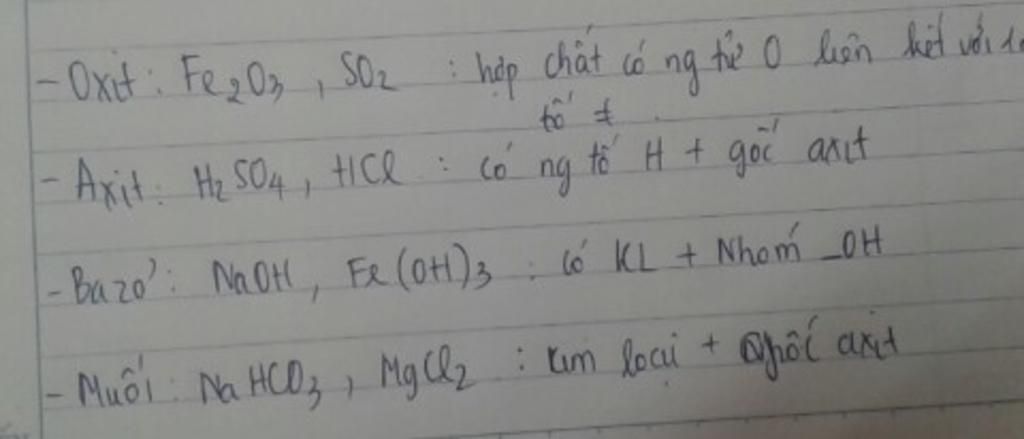 - Oxit : Fe2O3 , SO2 : hợp chất có ng tử O liên kết với
tố ≠ .
- Axit : H2SO4 , HCl : có ng tố H + gốc axit
- Bazơ : NaOH , Fe(OH)3 : có KL + Nhóm _OH
- Muối : NaHCO3 , MgCl2 : kim loại + gốc axit